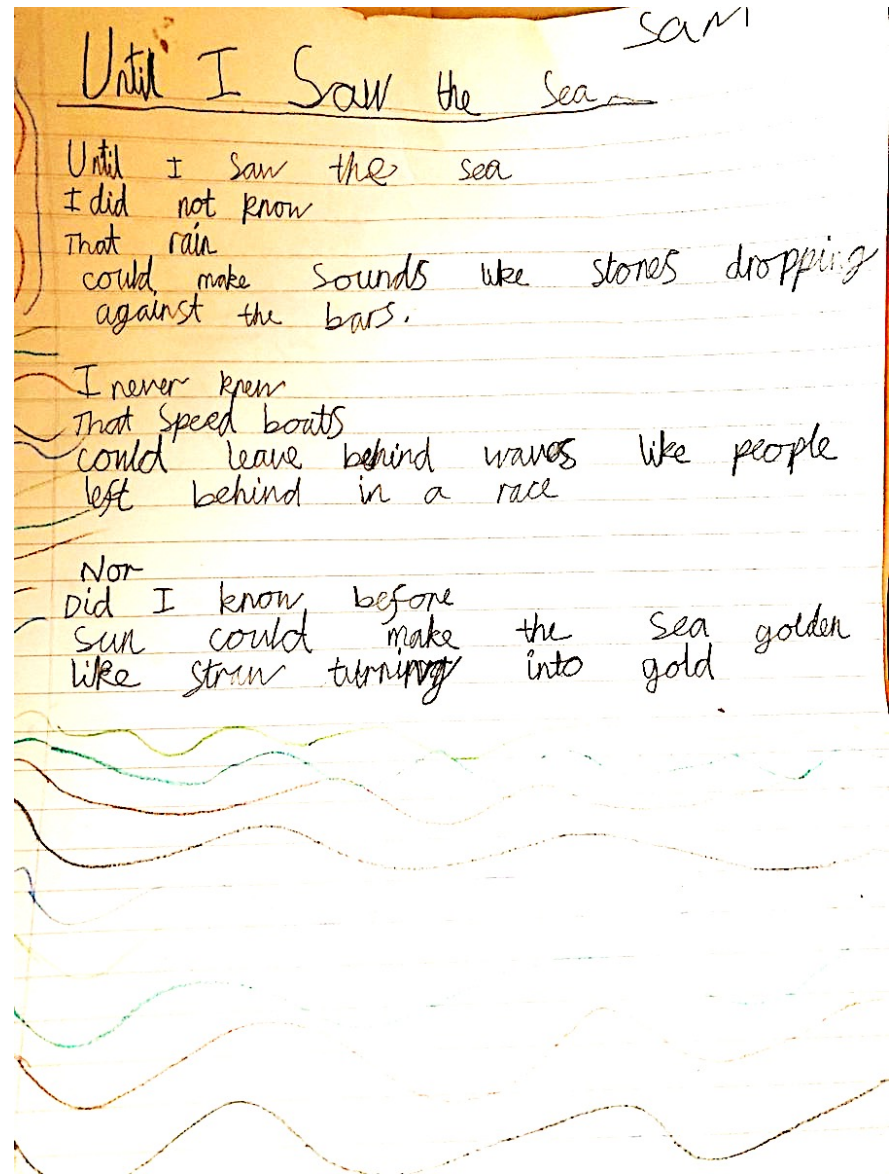 Sam
Until I Saw the Sea
Until I saw the sea
I did not know
That rain
could make sounds like stones dropping
against the bars.
I never knew
That speed boats
could leave behind waves like people
left behind in a race
Nor
Did I know before
sun could make the sea golden
like straw turning into gold